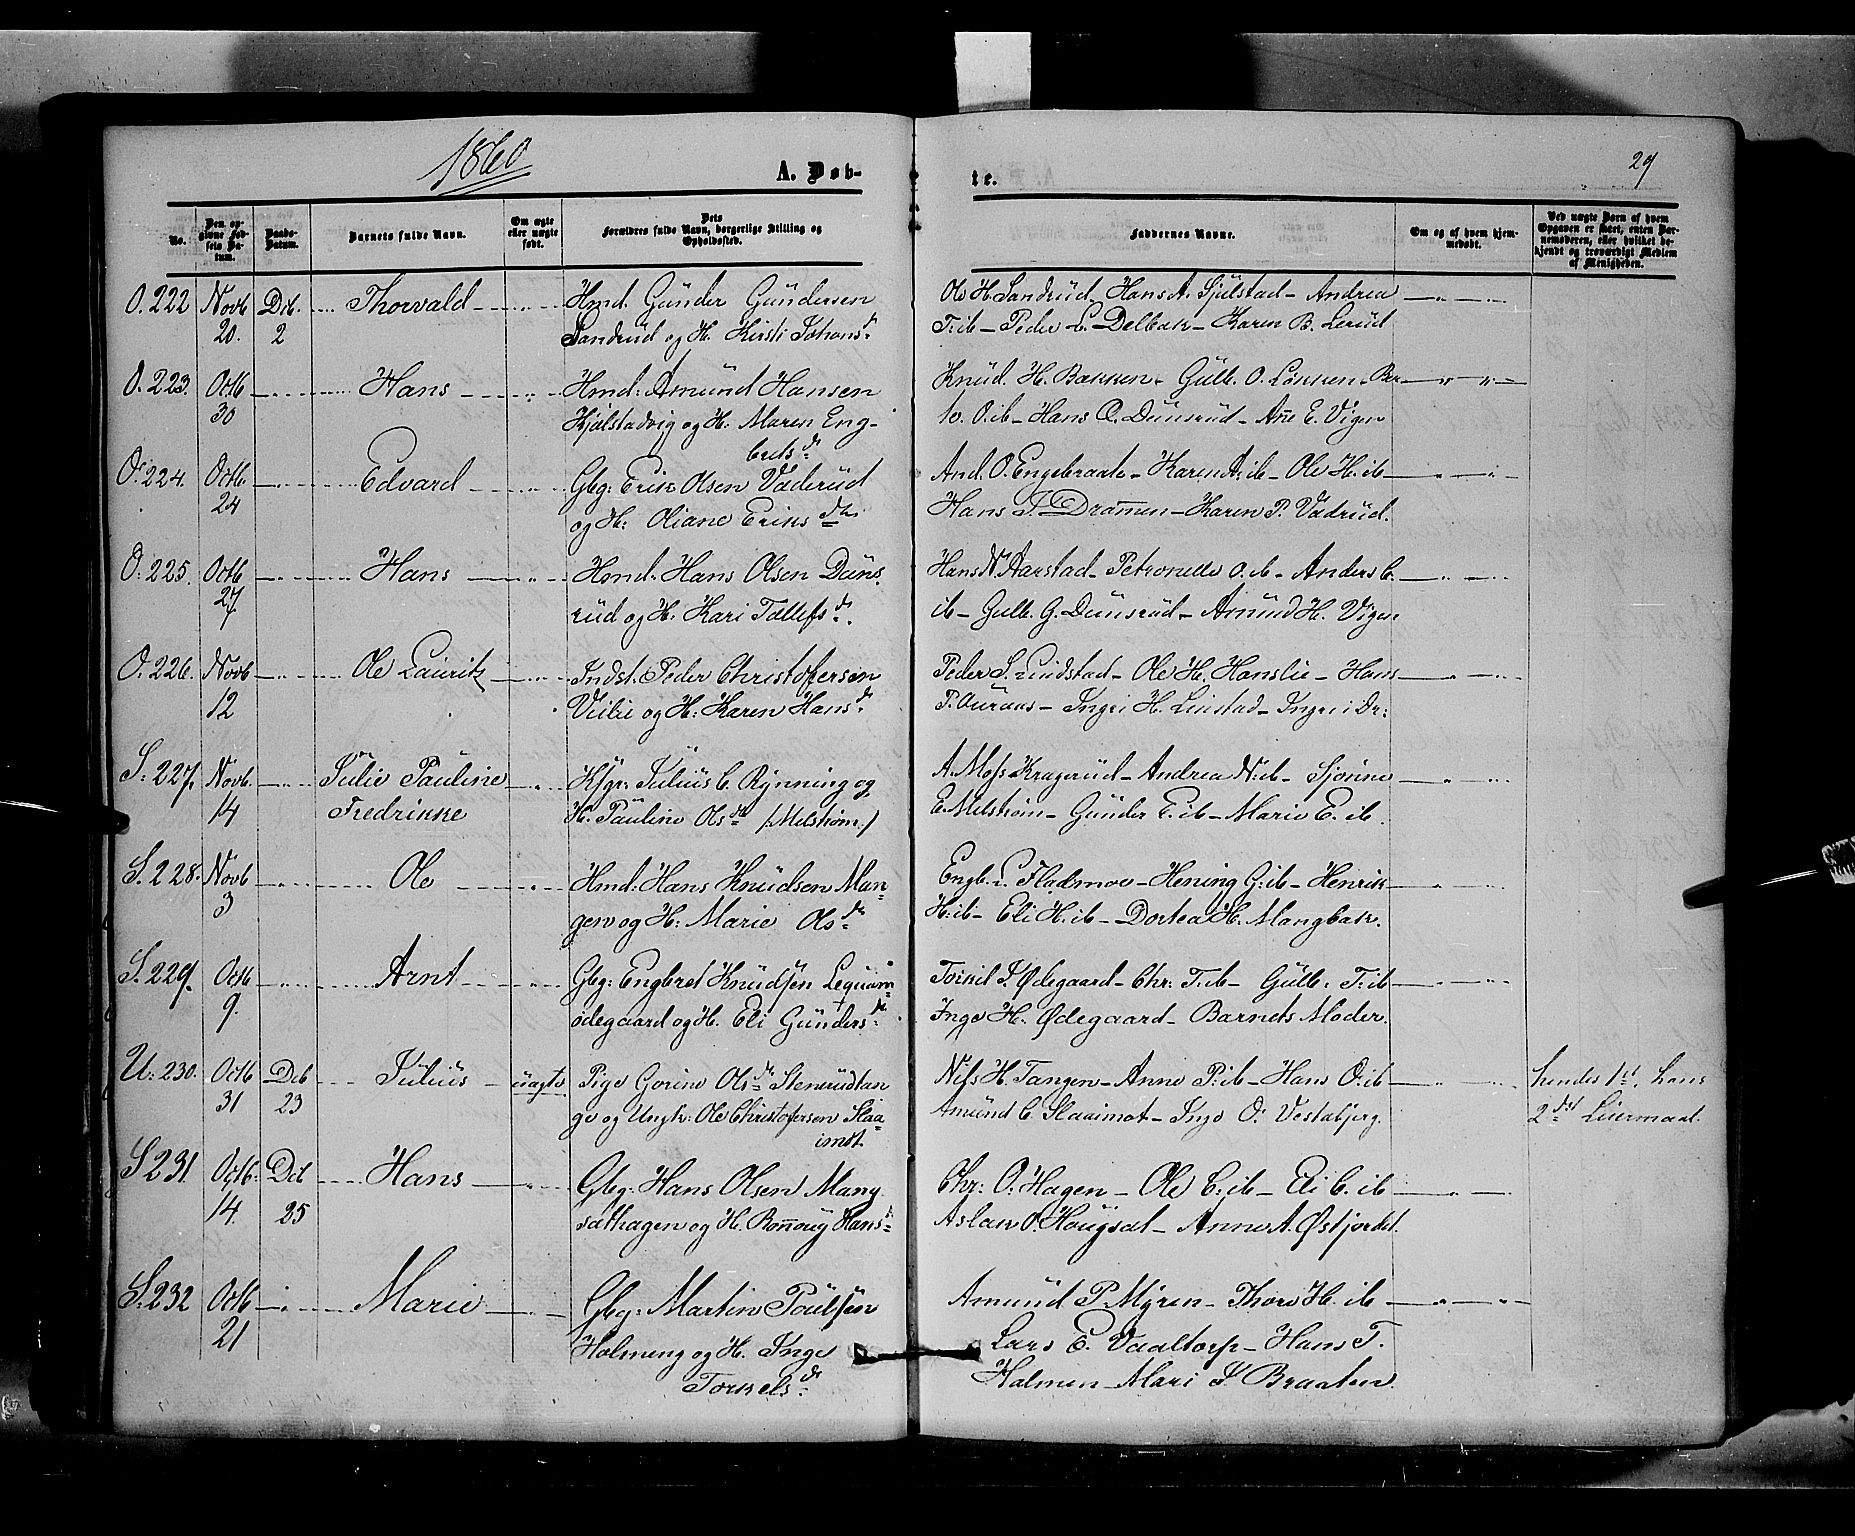 1860
A. Døb-
te.
29
No.
Den opgivne Fødsels Datum.
Daabs-Datum.
Barnets fulde Navn.
Om ægte eller uægte født.
Dets Forældres fulde Navn, borgerlige Stilling og Opholdssted.
Faddernes Navne.
Om og af hvem hjemmedøbt.
Ved uægte Børn af hvem Opgaven er skeet, enten Barnemoderen, eller hvilket bekjendt og troværdigt Medlem af Menigheden.
O. 222 Novb 20. Dcb. 2 Thorvald Hmd. Gunder Gundersen
Sandrud og H. Kirsti Johansd.
Ole H. Sandrud Hans A. Sjulstad - Andrea
T. ib - Peder C. Delbak - Karen B. Lerud
O. 223. Octb 30 Hans Hmd: Amund Hansen
Kjølstadvig og H: Maren Eng-
bretsd.
Knud. H. Bakken - Gulb. O. Løkken - Ber
te. O. ib - Hans O. Dunsrud - Ane E. Vigen
O. 224. Octb. 24 Edvard Gbg: Erik Olsen Vaderud
og H: Oliane Eriksdtr
And. O. Engebraate - Karen A: ib - Ole H. ib
Hans J. Dramen - Karen P. Vadrud.
O. 225. Octb 27 Hans Hmd: Hans Olsen Duns
rud og H. Kari Tollefsd.
Hans N. Aarstad - Petronelle O. ib - Anders C.
ib - Gulb. G. Dunsrud - Amund H. Vigen
O. 226. Novb 12 Ole Lauritz Indst. Peder Christofersen
Veilie og H: Karen Hansd.
Peder S. Lindstad - Ole H. Hanslie - Hans
P. Ouraas - Ingri H. Linstad - Ingri Do:
S: 227. Novb. 14 Julie Pauline
Fredrikke
Kfgr: Julius C. Rynning og
H. Pauline Olsd /: Melstrøm :/
A. Moss Kragerud - Andrea N: ib - Sjorine
E. Melstrøm - Gunder E. ib - Marie E. ib.
S. 228. Novb 3 Ole Hmd: Hans Knudsen Man
gen og H: Marie Olsd
Engb. L. Fladmoe - Hening G: ib - Henrik
H: ib - Eli H. ib - Dortea H. Mangbak.
S. 229. Octb 9. Arnt Gbg: Engbret Knudsen Leguam
ødegaard og H. Eli Gundersd.
Torkil J. Ødegaard - Chr: T: ib - Gulb: T: ib
Inge H. Ødegaard - Barnets Moder.
U: 230. Octb 31 Dcb 23 Julius uægte Pige Gorine Olsd Stenerudtan
ge og Ungk: Ole Christofersen Slaa
imot.
Nils H. Tangen - Anne P: ib - Hans O: ib
Amund C. Slaaimot - Inge O. Vestabjerg.
hendes 1st, hans
2det Leiermaal.
S 231 Octb: 14. Dcb 25 Hans Gbg: Hans Olsen Mang
sæthagen og H. Rønnoug Hansd
Chr: O. Hagen - Ole C. ib - Eli C. ib
Aslak O. Hougsæt - Anne A. Østjordet.
S: 232 Octb 21 Marie Gbg: Martin Poulsen
Holmeng og H. Inge
Torkelsd.
Amund P. Myren - Thore H. ib
Lars E. Vaaltorp - Hans T.
Holmen - Mari J. Braaten.